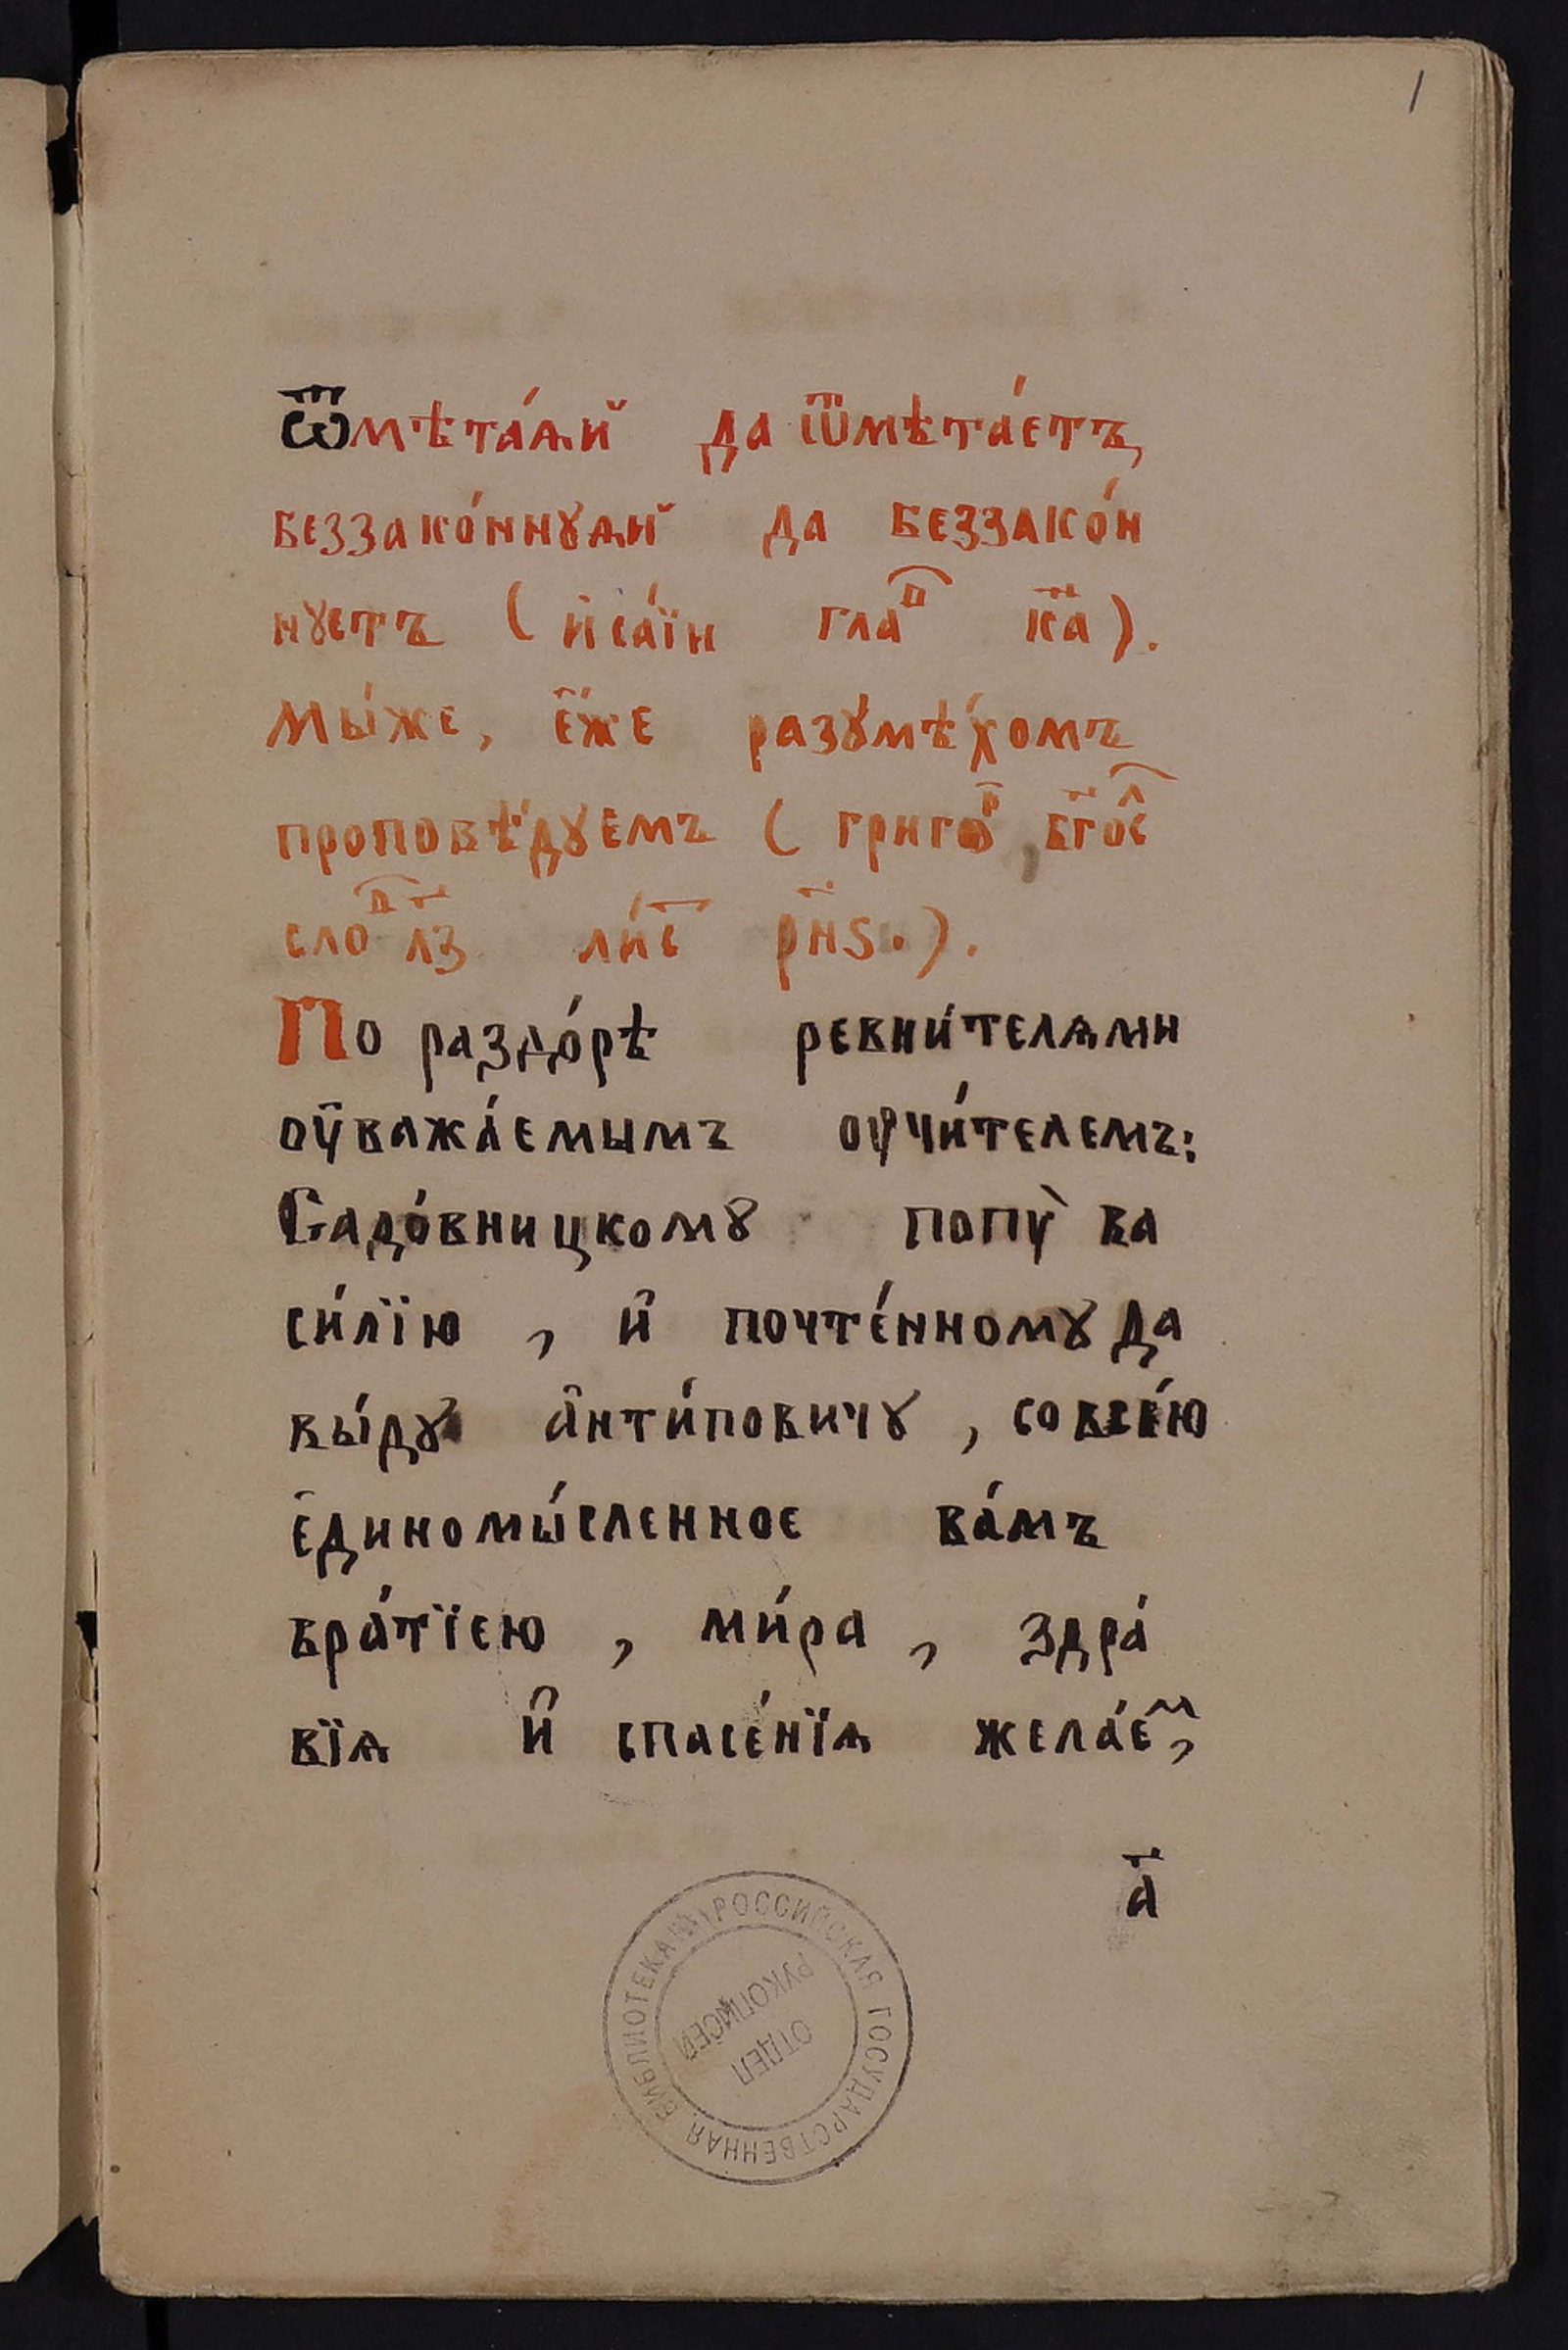 1
Ѿмѣта́ѧй да ѿмѣта́етъ
беззако́ннꙋѧй да беззако́н
нꙋетъ ( и҆са́їи глаⷣ к҃а ).
Мы́же, є҆́же разꙋмѣ́хомъ
проповѣ́дꙋемъ ( григѡⷬ, бг҃оⷧс
слоⷣ л҃з ли́с҃ р҃нѕ. ).
По раздо́рѣ ревни́телѧми
оу҆важа́емымъ оу҆чи́телемъ:
Садо́вницкомꙋ попу̀ ва
си́лїю , и҆ почте́нномꙋ да
вы́дꙋ а҆нти́повичꙋ , совсе́ю
є҆диномы́сленное ва́мъ
бра́тїею , ми́ра , здра́
вїѧ и҆ спасе́нїѧ жела́еⷨ,
а҃
РОССИЙСКАЯ ГОСУДАРСТВЕННАЯ БИБЛИОТЕКА
ОТДЕЛ
РУКОПИСЕЙ